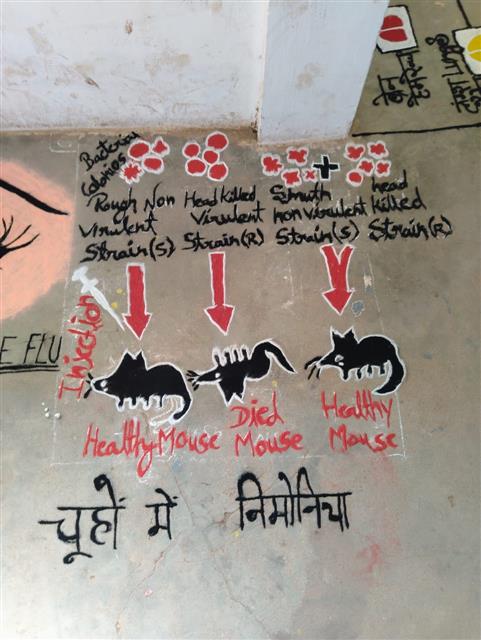 Bacterial
Colonies
Rough Non
virulent
Strain(S)
Head killed
Virulent
Strain(R)
Smuth
non virulent
Strain(S)
head
killed
Strain(R)
Injection
E FLU
Healthy Mouse
Died
Mouse
Healthy
Mouse
चूहों में निमोनिया